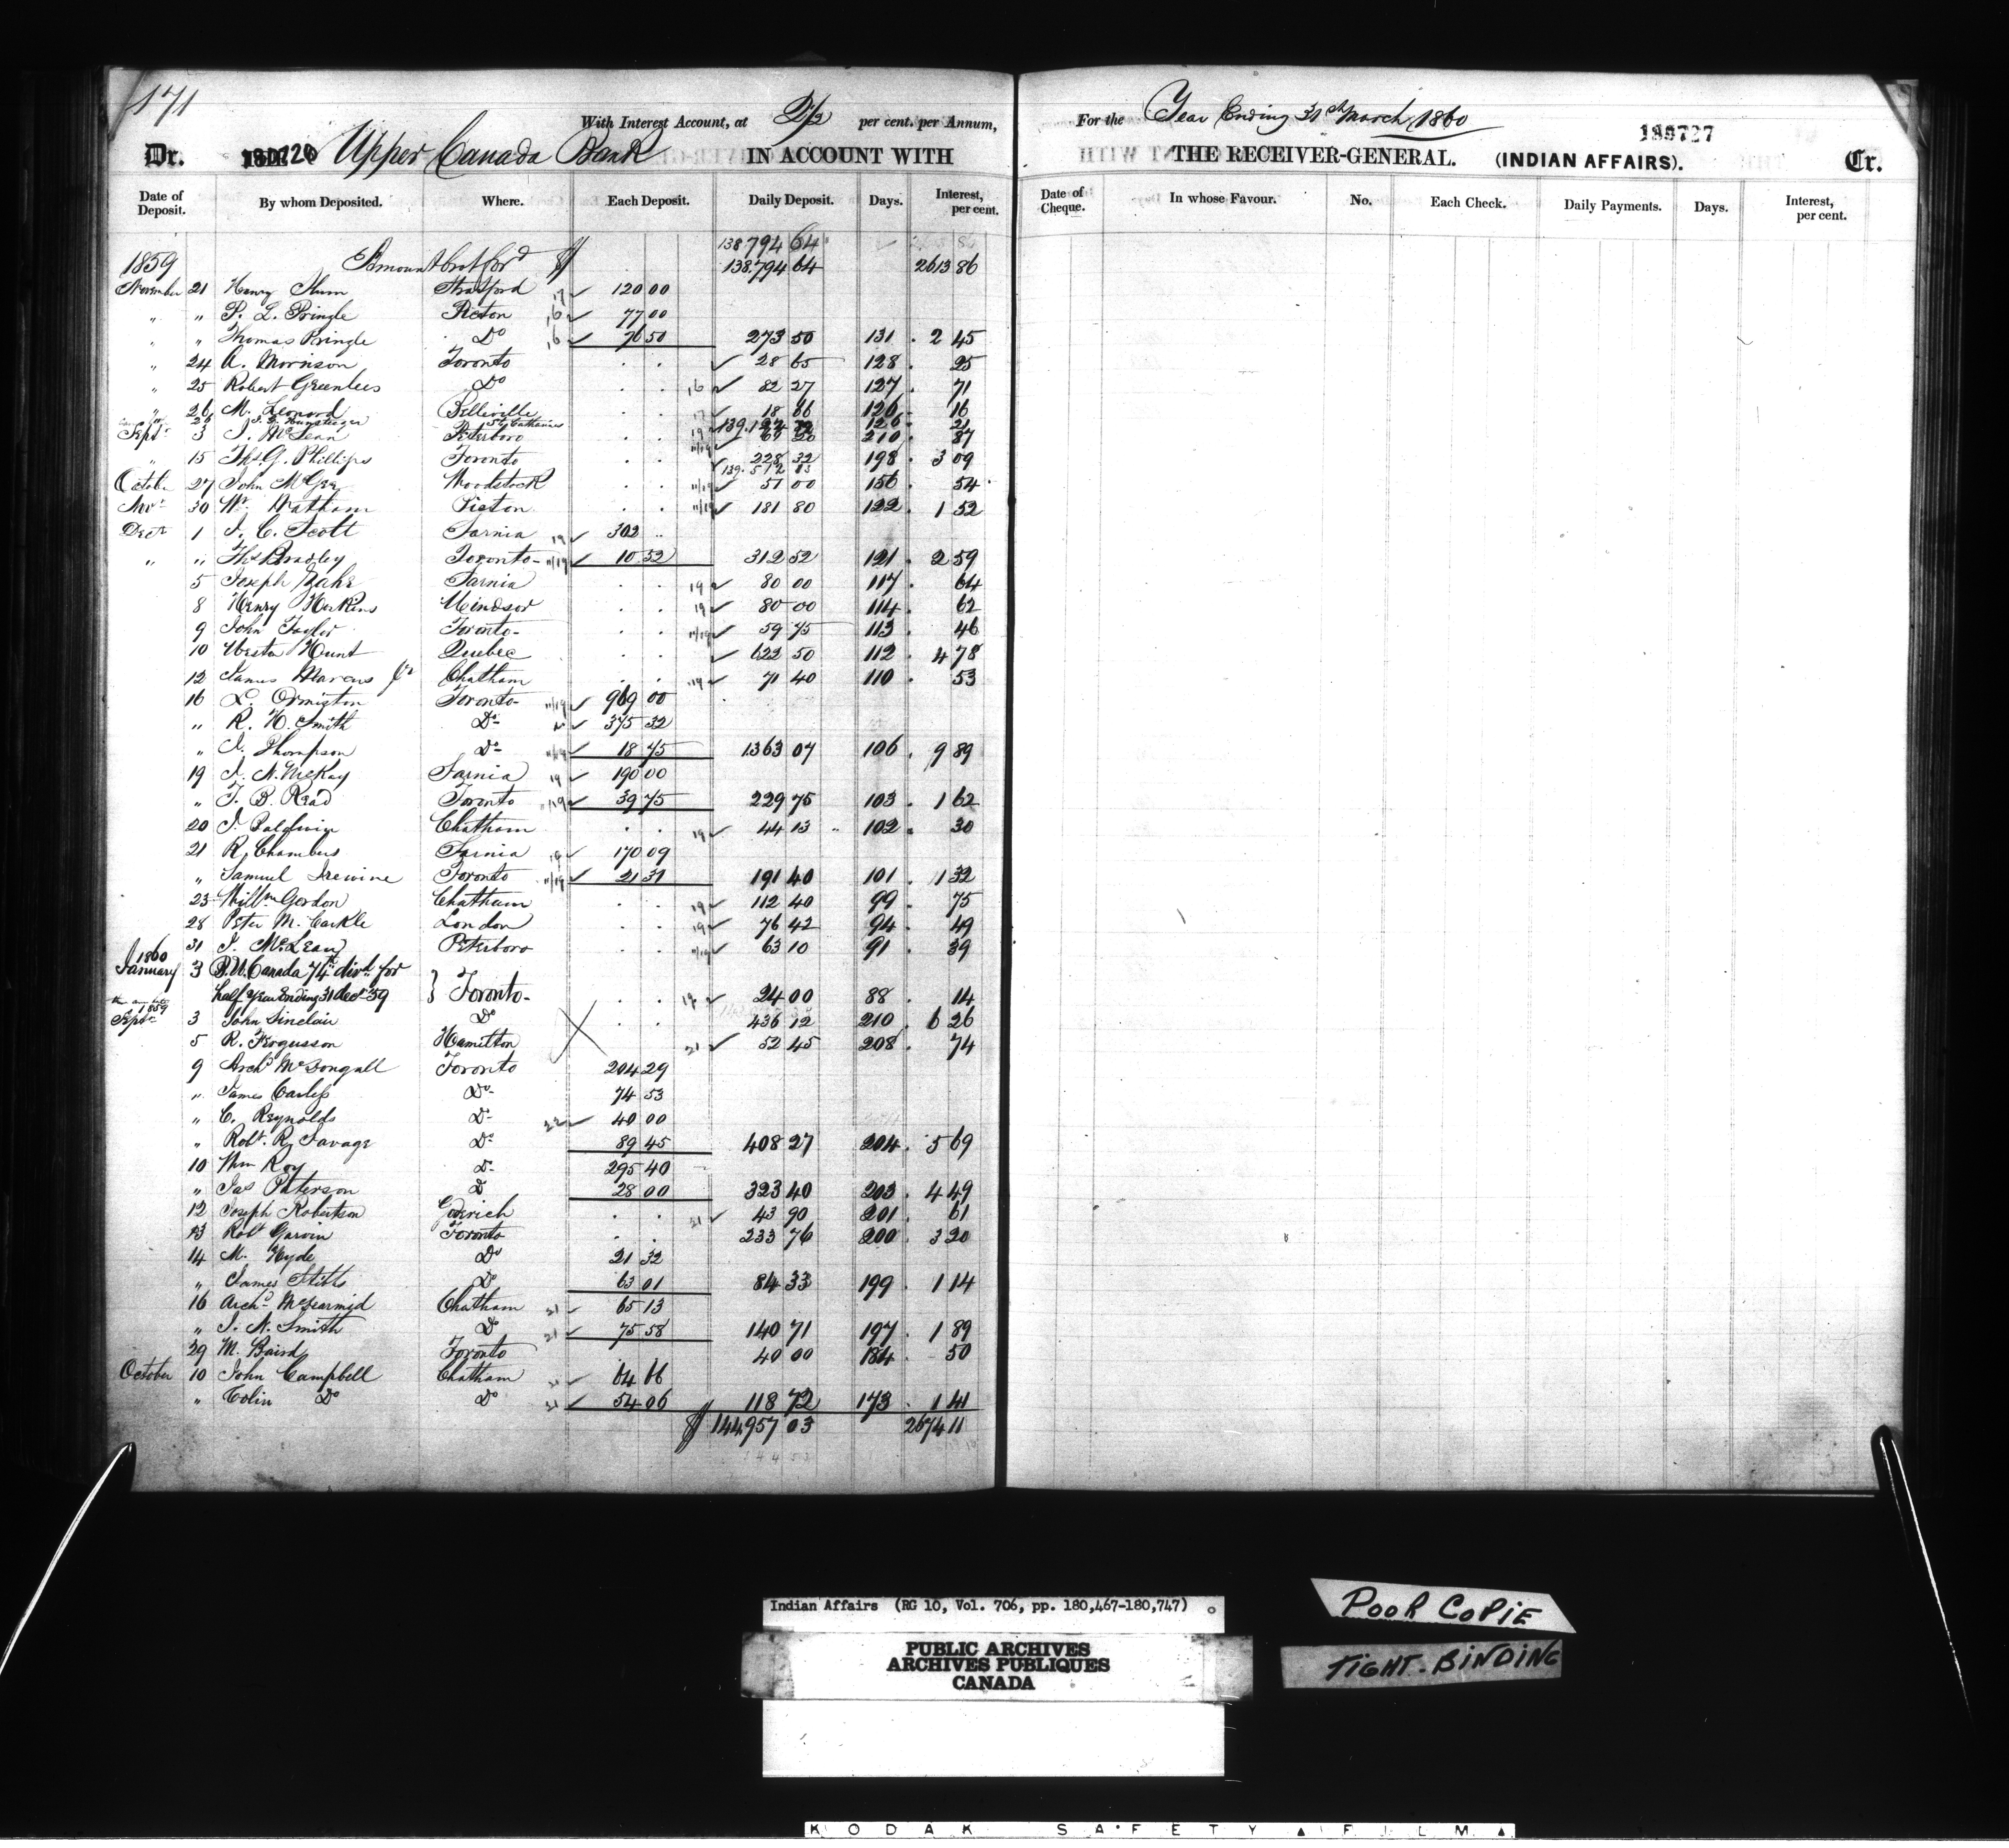 171
With Interest Account, at 2½ per cent. per Annum,
Dr. Upper Canada Bank IN ACCOUNT WITH
Date of Deposit. By whom Deposited. Where. Each Deposit. Daily Deposit. Days. Interest, per cent.
138.794 64
1859 Amount brot ford $ 138.794 64 2613 86
November 21 Henry Stratford 17 120 00
" " P. L. Pringle Picton 16 77 00
" " Thomas Pringle Do 16 76 50 273 50 131 2 45
" 24 A. Morrison Toronto 28 65 128 25
" 25 Robert Greenlees Do 16 82 27 127 71
" 26 M. Leonard Belleville 17 18 66 126 16
26 St Catharines 126 21
Septr 3 J. McLean Peterboro 210 87
" 15 Ths. G. Phillips Toronto 228 32 198 3 09
October 27 John McGee Woodstock 11/19 51 00 156 54
Novr 30 Wm Picton 11/19 181 80 122 1 52
Decr 1 J. C. Scott Sarnia 19 302 "
" " Ths Bradley Toronto 11/19 10 52 312 52 121 2 59
5 Joseph Sarnia 19 80 00 117 64
8 Henry Windsor 19 80 00 114 62
9 John Taylor Toronto 11/19 59 75 113 46
10 Weston Hunt Quebec 622 50 112 4 78
12 James Marcus Jr Chatham 19 71 40 110 53
16 L. Ormiston Toronto 11/19 969 00
" R. H. Smith Do 375 32
" J. Thompson Do 11/19 18 75 1363 07 106 9 89
19 J. N. McKay Sarnia 19 190 00
" T. B. Read Toronto 11/19 39 75 229 75 103 1 62
20 J. Baldwin Chatham 19 44 13 102 30
21 R. Chambers Sarnia 19 170 09
" Samuel Irewine Toronto 11/19 21 31 191 40 101 1 32
23 Willm Gordon Chatham 19 112 40 99 75
28 Peter McCarkle London 19 76 42 94 49
31 J. McLean Peterboro 11/19 63 10 91 39
1860
January 3 B. U. Canada 74th divd for
half year ending 31 Decr 59 } Toronto 19 24 00 88 14
1859
Septr 3 John Sinclair Do 436 12 210 6 26
5 R. Fergusson Hamilton 21 52 45 208 74
9 Archd McDongall Toronto 204 29
" James Carless Do 74 53
" C. Reynolds Do 22 40 00
" Robt. R. Savage Do 89 45 408 27 204 5 69
10 Wm Roy Do 295 40
" Jas Paterson Do 28 00 323 40 203 4 49
12 Joseph Robertson Goderich 21 43 90 201 61
13 Robt Garvin Toronto 233 76 200 3 20
14 M. Hyde Do 21 32
" James Stitts Do 63 01 84 33 199 1 14
16 Archd McDearmid Chatham 21 65 13
" J. N. Smith Do 21 75 58 140 71 197 1 89
29 M. Baird Toronto 40 00 184 50
October 10 John Campbell Chatham 64 66
" Colin Do Do 54 06 118 72 173 1 41
$ 144957 03 2674 11
For the Year Ending 31st March 1860
180727
THE RECEIVER-GENERAL. (INDIAN AFFAIRS). Cr.
Date of Cheque. In whose Favour. No. Each Check. Daily Payments. Days. Interest, per cent.
Indian Affairs (RG 10, Vol. 706, pp. 180,467-180,747)
PUBLIC ARCHIVES
ARCHIVES PUBLIQUES
CANADA
POOR COPIE
TIGHT-BINDING
KODAK SAFETY FILM